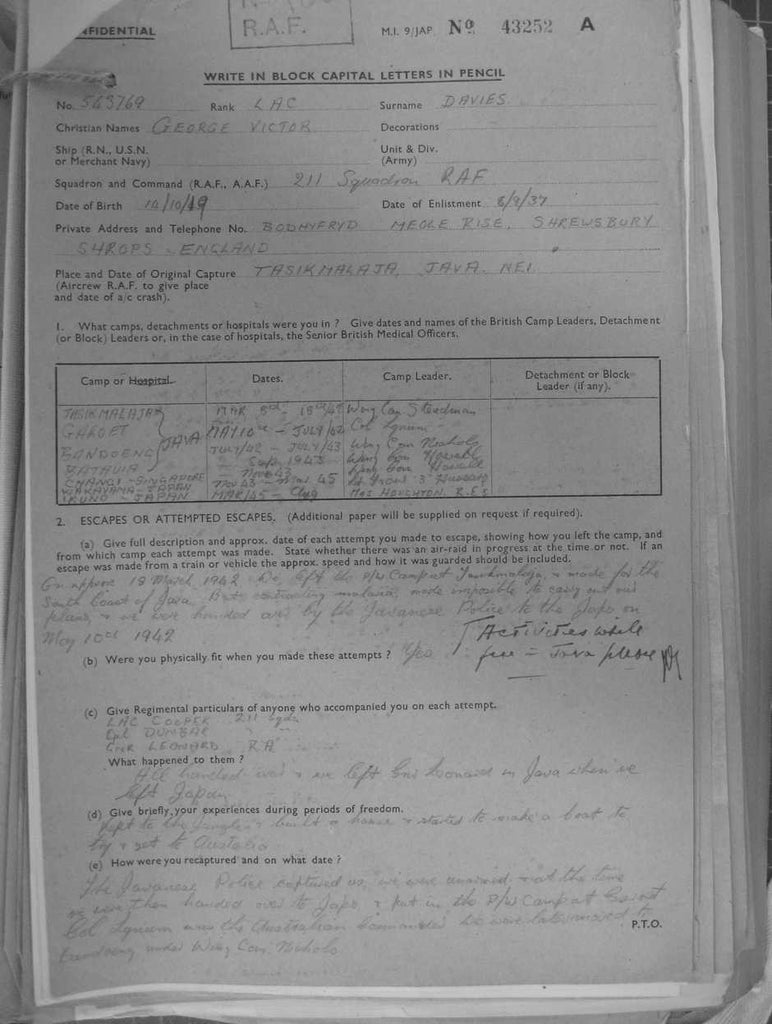 FIDENTIAL
R.A.F.
M.I. 9/JAP No. 43252 A
WRITE IN BLOCK CAPITAL LETTERS IN PENCIL
No. 563769 Rank LAC Surname DAVIES
Christian Names GEORGE VICTOR Decorations
Ship (R.N., U.S.N. or Merchant Navy) Unit & Div. (Army)
Squadron and Command (R.A.F., A.A.F.) 211 Squadron RAF
Date of Birth /10/19 Date of Enlistment /9/37
Private Address and Telephone No. BODHYFRYD MEOLE RISE, SHREWSBURY
SHROPS ENGLAND
Place and Date of Original Capture TASIKMALAJA, JAVA. NEI
(Aircrew R.A.F. to give place
and date of a/c crash).
1. What camps, detachments or hospitals were you in ? Give dates and names of the British Camp Leaders, Detachment
(or Block) Leaders or, in the case of hospitals, the Senior British Medical Officers.
Camp or Hospital. Dates. Camp Leader. Detachment or Block Leader (if any).
TASIKMALAJA MAR 8th - 18th/42 Wing Com Steedman
GAROET JAVA MAY 10th - JULY/42 Col Lyneum
BANDOENG JULY/42 - JULY/43 Wing Com Nichols
BATAVIA Sept 1943 Wing Com
CHANGI - SINGAPORE Nov 43
WAKAYAMA - JAPAN Nov 43 - Mar 45 Hussars
IKUNO - JAPAN MAR/45 - Aug HOUGHTON R.E.S
2. ESCAPES OR ATTEMPTED ESCAPES. (Additional paper will be supplied on request if required).
(a) Give full description and approx. date of each attempt you made to escape, showing how you left the camp, and
from which camp each attempt was made. State whether there was an air-raid in progress at the time or not. If an
escape was made from a train or vehicle the approx. speed and how it was guarded should be included.
On approx 18 March 1942 We left the P/W Camp at Tasikmalaja, & made for the
South Coast of Java. But contracting malaria, made impossible to carry out our
plans, & we were handed over by the Javanese Police to the Japs on
May 10th 1942
Activities while
(b) Were you physically fit when you made these attempts ? Yes
free in Java please
(c) Give Regimental particulars of anyone who accompanied you on each attempt.
LAC COOPER 211 Sqdn
Cpl DUNBAR " "
Gnr LEONARD R.A
What happened to them ?
All handed over & we left Gnr Leonard in Java when we
left Japan
(d) Give briefly your experiences during periods of freedom.
Kept to the jungle & built a house & started to make a boat to
try & get to Australia
(e) How were you recaptured and on what date ?
The Javanese Police captured us, we were unarmed at the time
we were then handed over to Japs & put in the P/W Camp at Garoet
Col Lyneum was the Australian Commander We were later moved to
Bandoeng under Wing Com Nichols
P.T.O.